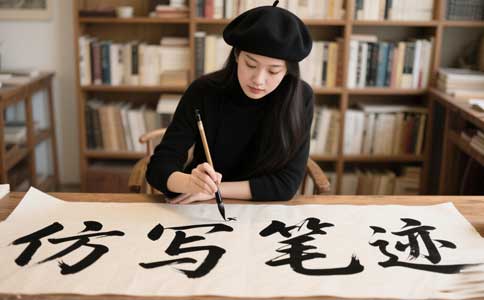 仿写笔迹